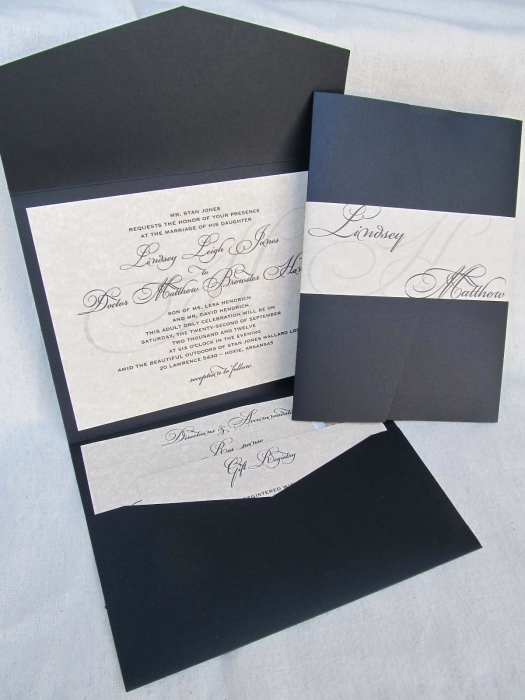 MR. STAN JONES
REQUESTS THE HONOR OF YOUR PRESENCE
AT THE MARRIAGE OF HIS DAUGHTER
Lindsey Leigh Jones
to
Doctor Matthew Brewster
SON OF MS. LESA HENDRICH
AND MR. DAVID HENDRICH
THIS ADULT ONLY CELEBRATION WILL BE ON
SATURDAY, THE TWENTY-SECOND OF SEPTEMBER
TWO THOUSAND AND TWELVE
AT SIX O'CLOCK IN THE EVENING
AMID THE BEAUTIFUL OUTDOORS OF STAN JONES WALLARD
20 LAWRENCE 5630 – HOXIE, ARKANSAS
reception to follow
Directions &
Response
Gift Registry
REGISTERED
Lindsey
Matthew